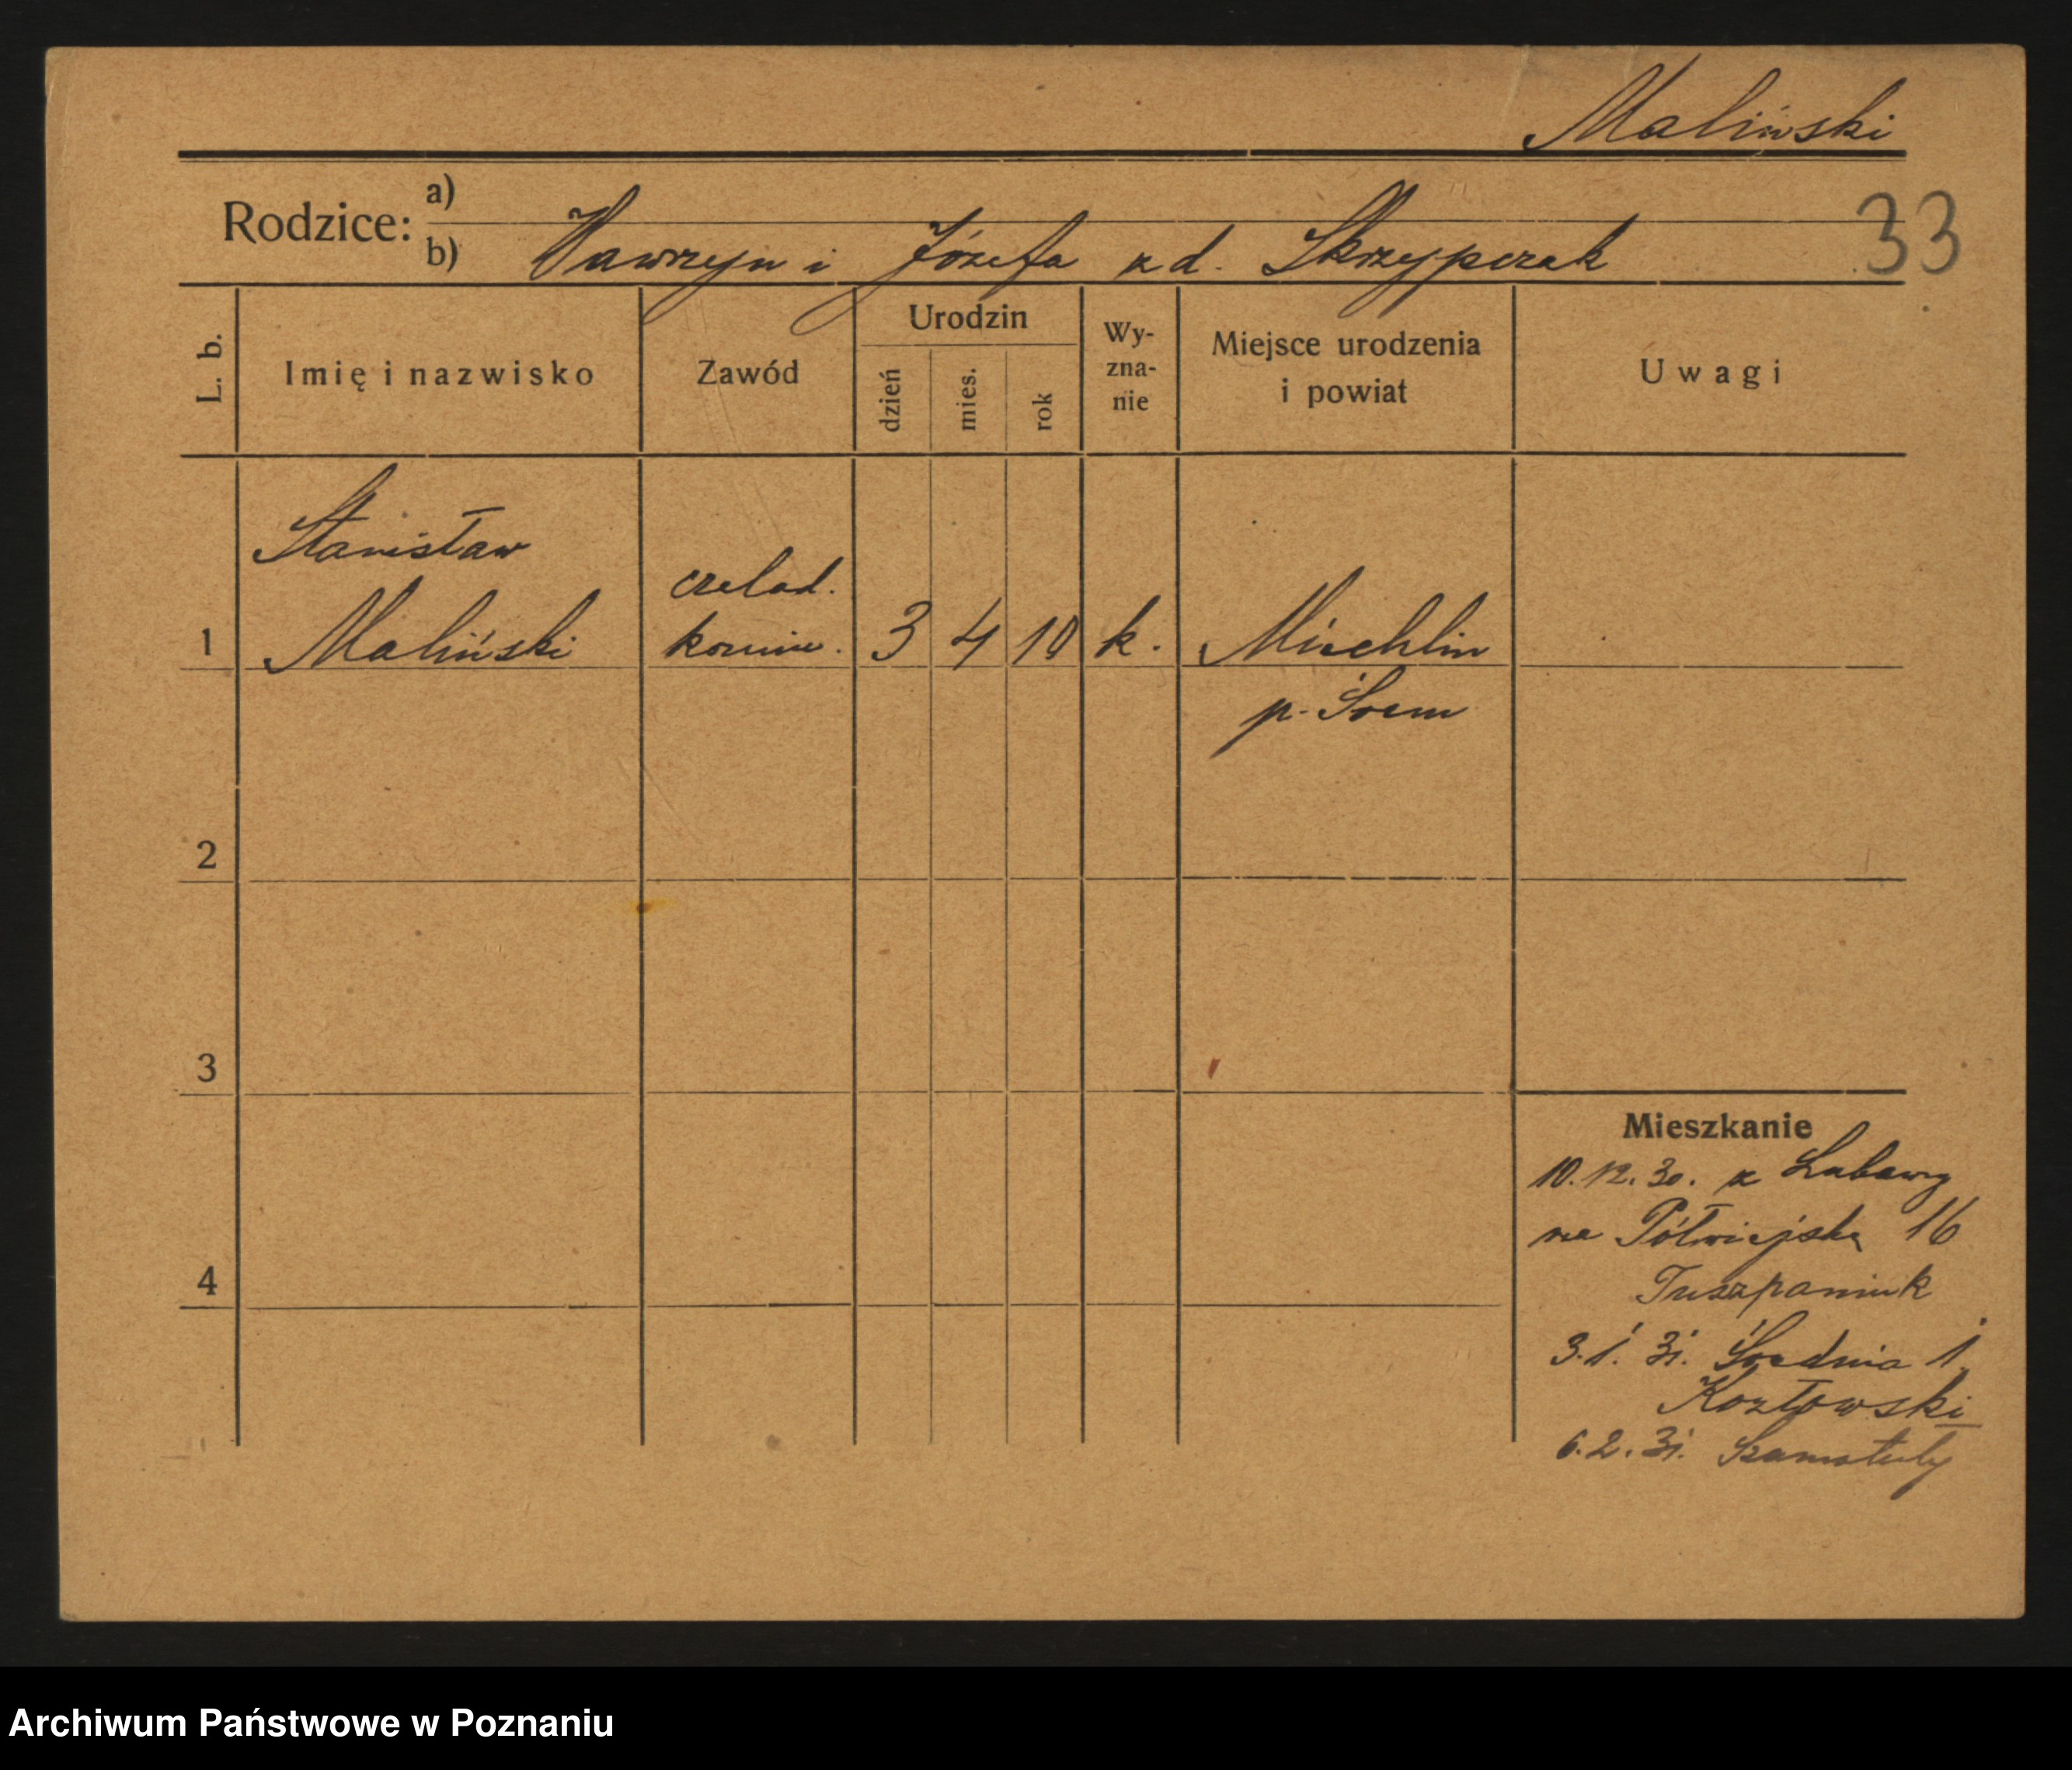 Maliński
Rodzice: a)
b) Wawrzyn i Józefa z d. Skrzypczak
33
L. b.
Imię i nazwisko
Zawód
Urodzin
dzień
mies.
rok
Wy-
zna-
nie
Miejsce urodzenia
i powiat
Uwagi
Stanisław
czelad.
1 Maliński komin. 3 4 10 k. Miechlin
p. Śrem
2
3
4
Mieszkanie
10.12.30. z Lubawy
na Półwiejską 16
3.1.31. Średnia 1
Kozłowski
6.2.31. Szamotuły
Archiwum Państwowe w Poznaniu